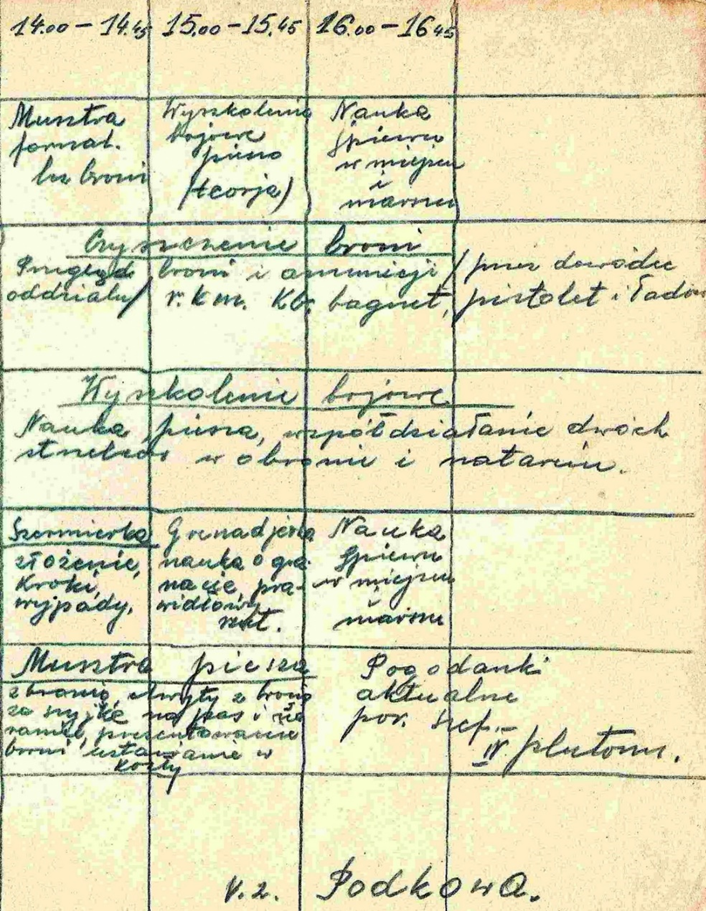 14.00 – 14.45 15.00 – 15.45 16.00 – 16 45
Musztra
formal.
bez broni
Wyszkolenie
bojowe
piesze
(teorja)
Nauka
śpiewu
w miejscu
i
marszu
Czyszczenie broni
Przegląd broni i amunicji / przez dowódcę
oddziału / r.k.m. Kb, bagnet, pistolet i ładow
Wyszkolenie bojowe
Nauka piesza, współdziałanie dwóch
strzelców w obronie i natarciu.
Szermierka
złożenie,
Kroki,
wypady,
Grenadjerka
nauka o gra-
nacie, pra-
widłowy
rzut.
Nauka
śpiewu
w miejscu
i
marszu
Musztra piesza
zbranie, chwyty z bronią
za szyjkę na pas i na
ramię, prezentowanie
broni, ustawianie w
kozły
Pogodanki
aktualne
por. szef.
IV plutonu.
V.2. Podkowa.